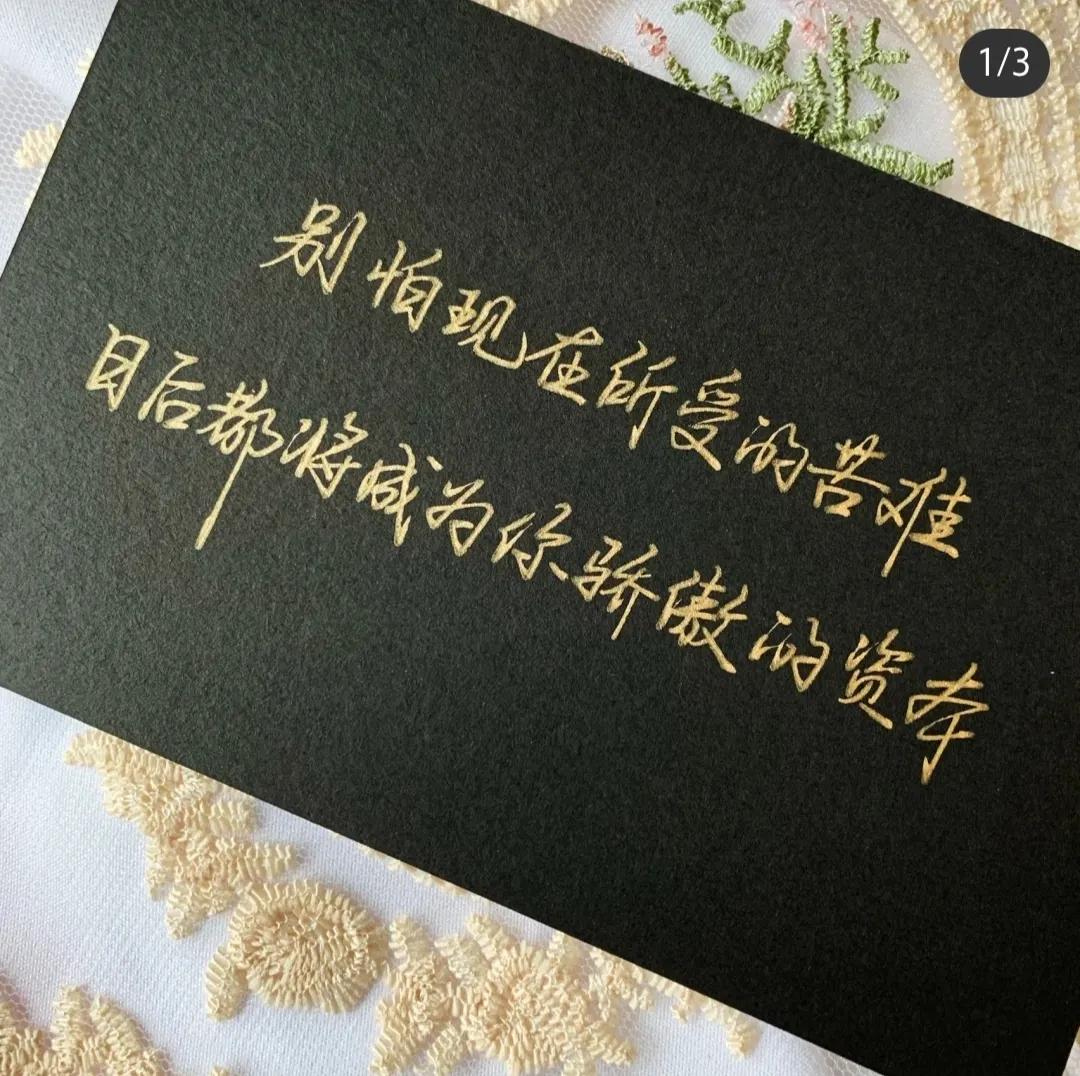 1/3
别怕现在所受的苦难
日后都将成为你骄傲的资本